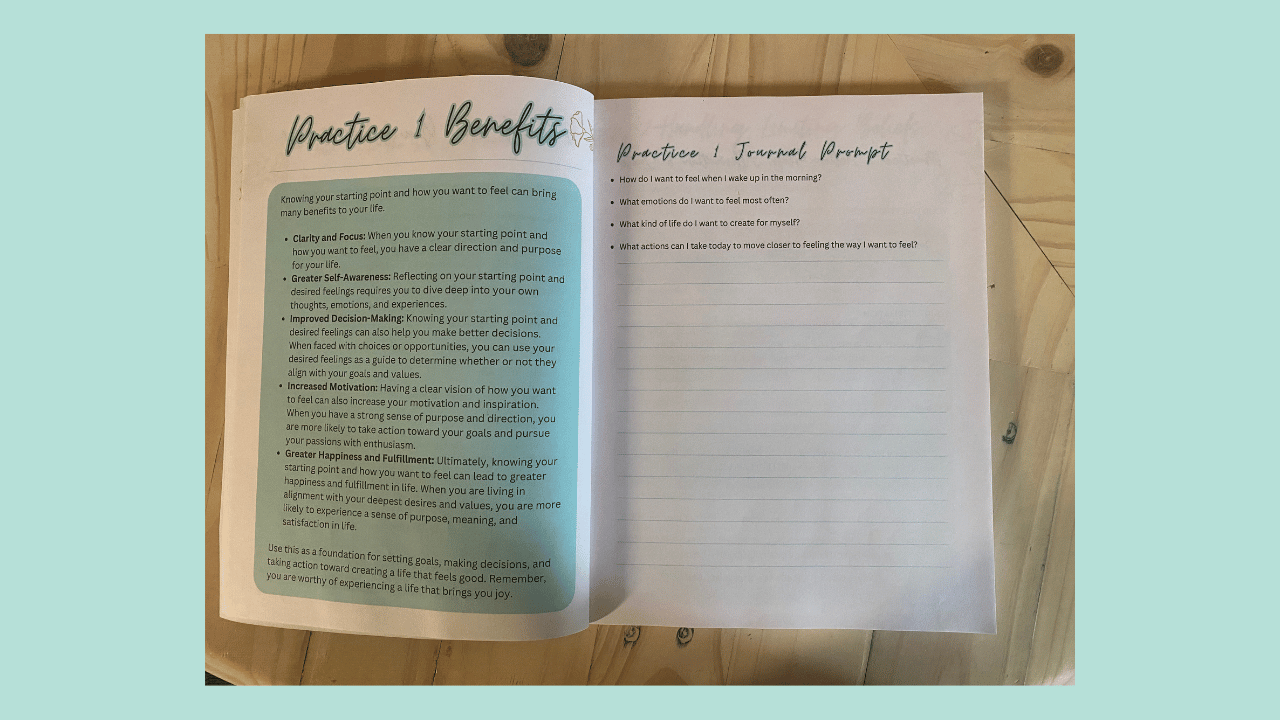 Practice 1 Benefits
Knowing your starting point and how you want to feel can bring
many benefits to your life.
• Clarity and Focus: When you know your starting point and
how you want to feel, you have a clear direction and purpose
for your life.
• Greater Self-Awareness: Reflecting on your starting point and
desired feelings requires you to dive deep into your own
thoughts, emotions, and experiences.
• Improved Decision-Making: Knowing your starting point and
desired feelings can also help you make better decisions.
When faced with choices or opportunities, you can use your
desired feelings as a guide to determine whether or not they
align with your goals and values.
• Increased Motivation: Having a clear vision of how you want
to feel can also increase your motivation and inspiration.
When you have a strong sense of purpose and direction, you
are more likely to take action toward your goals and pursue
your passions with enthusiasm.
• Greater Happiness and Fulfillment: Ultimately, knowing your
starting point and how you want to feel can lead to greater
happiness and fulfillment in life. When you are living in
alignment with your deepest desires and values, you are more
likely to experience a sense of purpose, meaning, and
satisfaction in life.
Use this as a foundation for setting goals, making decisions, and
taking action toward creating a life that feels good. Remember,
you are worthy of experiencing a life that brings you joy.
Practice 1 Journal Prompt
• How do I want to feel when I wake up in the morning?
• What emotions do I want to feel most often?
• What kind of life do I want to create for myself?
• What actions can I take today to move closer to feeling the way I want to feel?